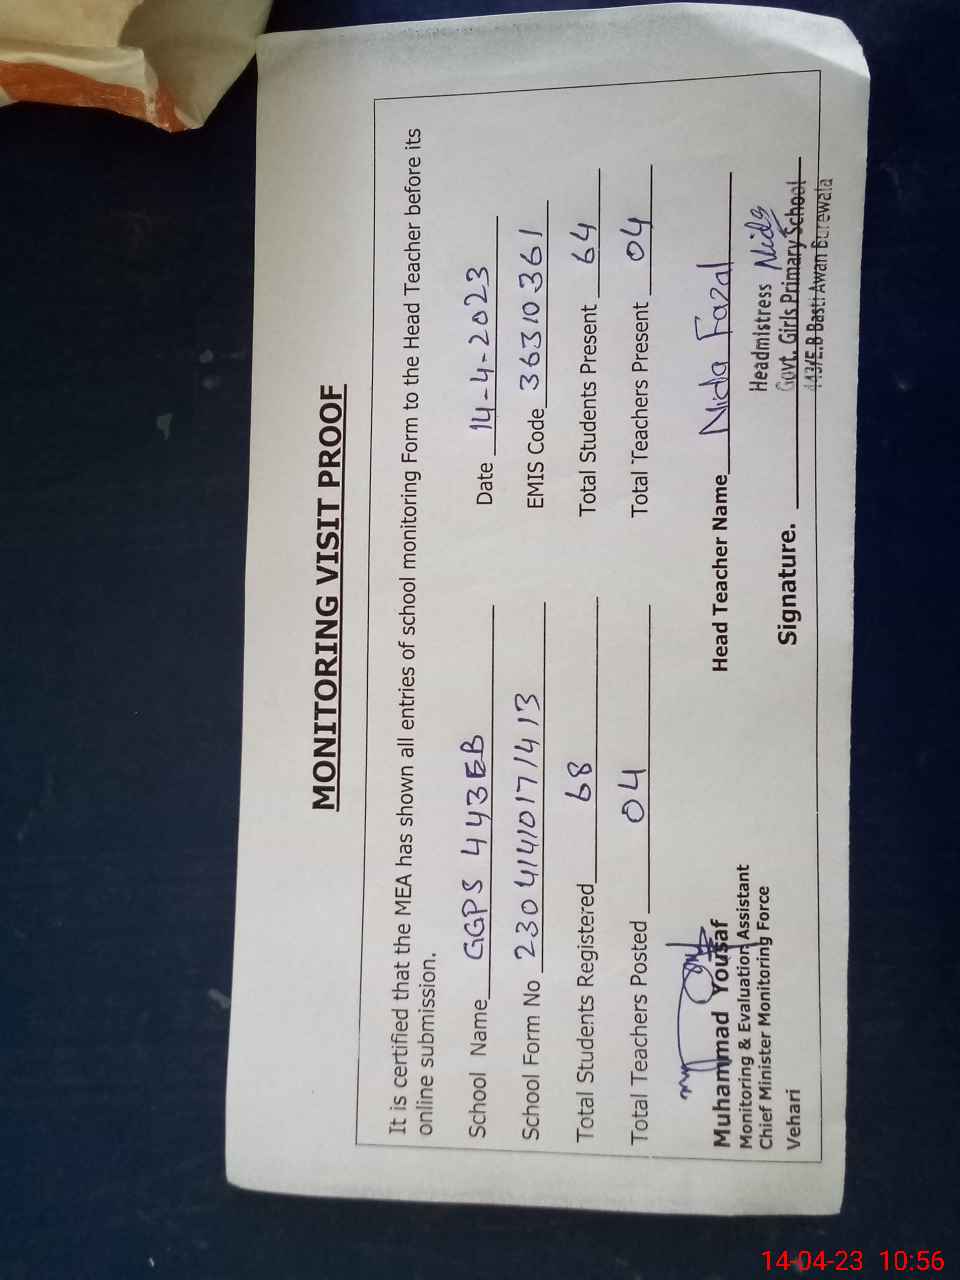 MONITORING VISIT PROOF
It is certified that the MEA has shown all entries of school monitoring Form to the Head Teacher before its
online submission.
School Name GGPS 443EB Date 14-4-2023
School Form No 23041410171413 EMIS Code 36310361
Total Students Registered 68 Total Students Present 64
Total Teachers Posted 04 Total Teachers Present 04
Muhammad Yousaf
Monitoring & Evaluation Assistant
Chief Minister Monitoring Force
Vehari
Head Teacher Name Nida Fazal
Signature. Nida
Headmistress
Govt. Girls Primary School
443/E.B Basti Awan Burewala
14-04-23 10:56